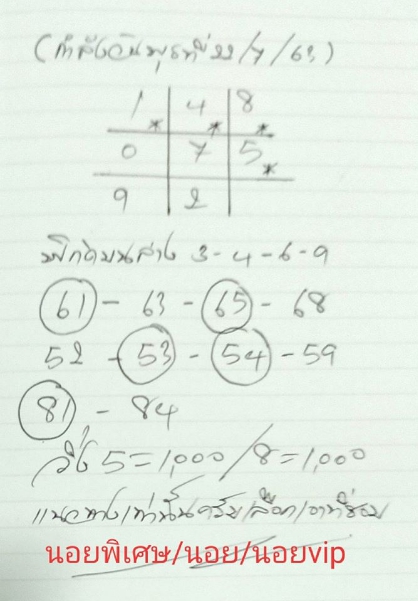 (กำลังวันพุธที่ 22/7/63)
1 4 8
0 7 5
9 2
บน ล่าง 3-4-6-9
61 - 63 - 65 - 68
52 - 53 - 54 - 59
81 - 84
วิ่ง 5=1,000/8=1,000
แนวทางเท่านั้นครับเลือกเอาที่ชอบ
นอยพิเศษ/นอย/นอยvip